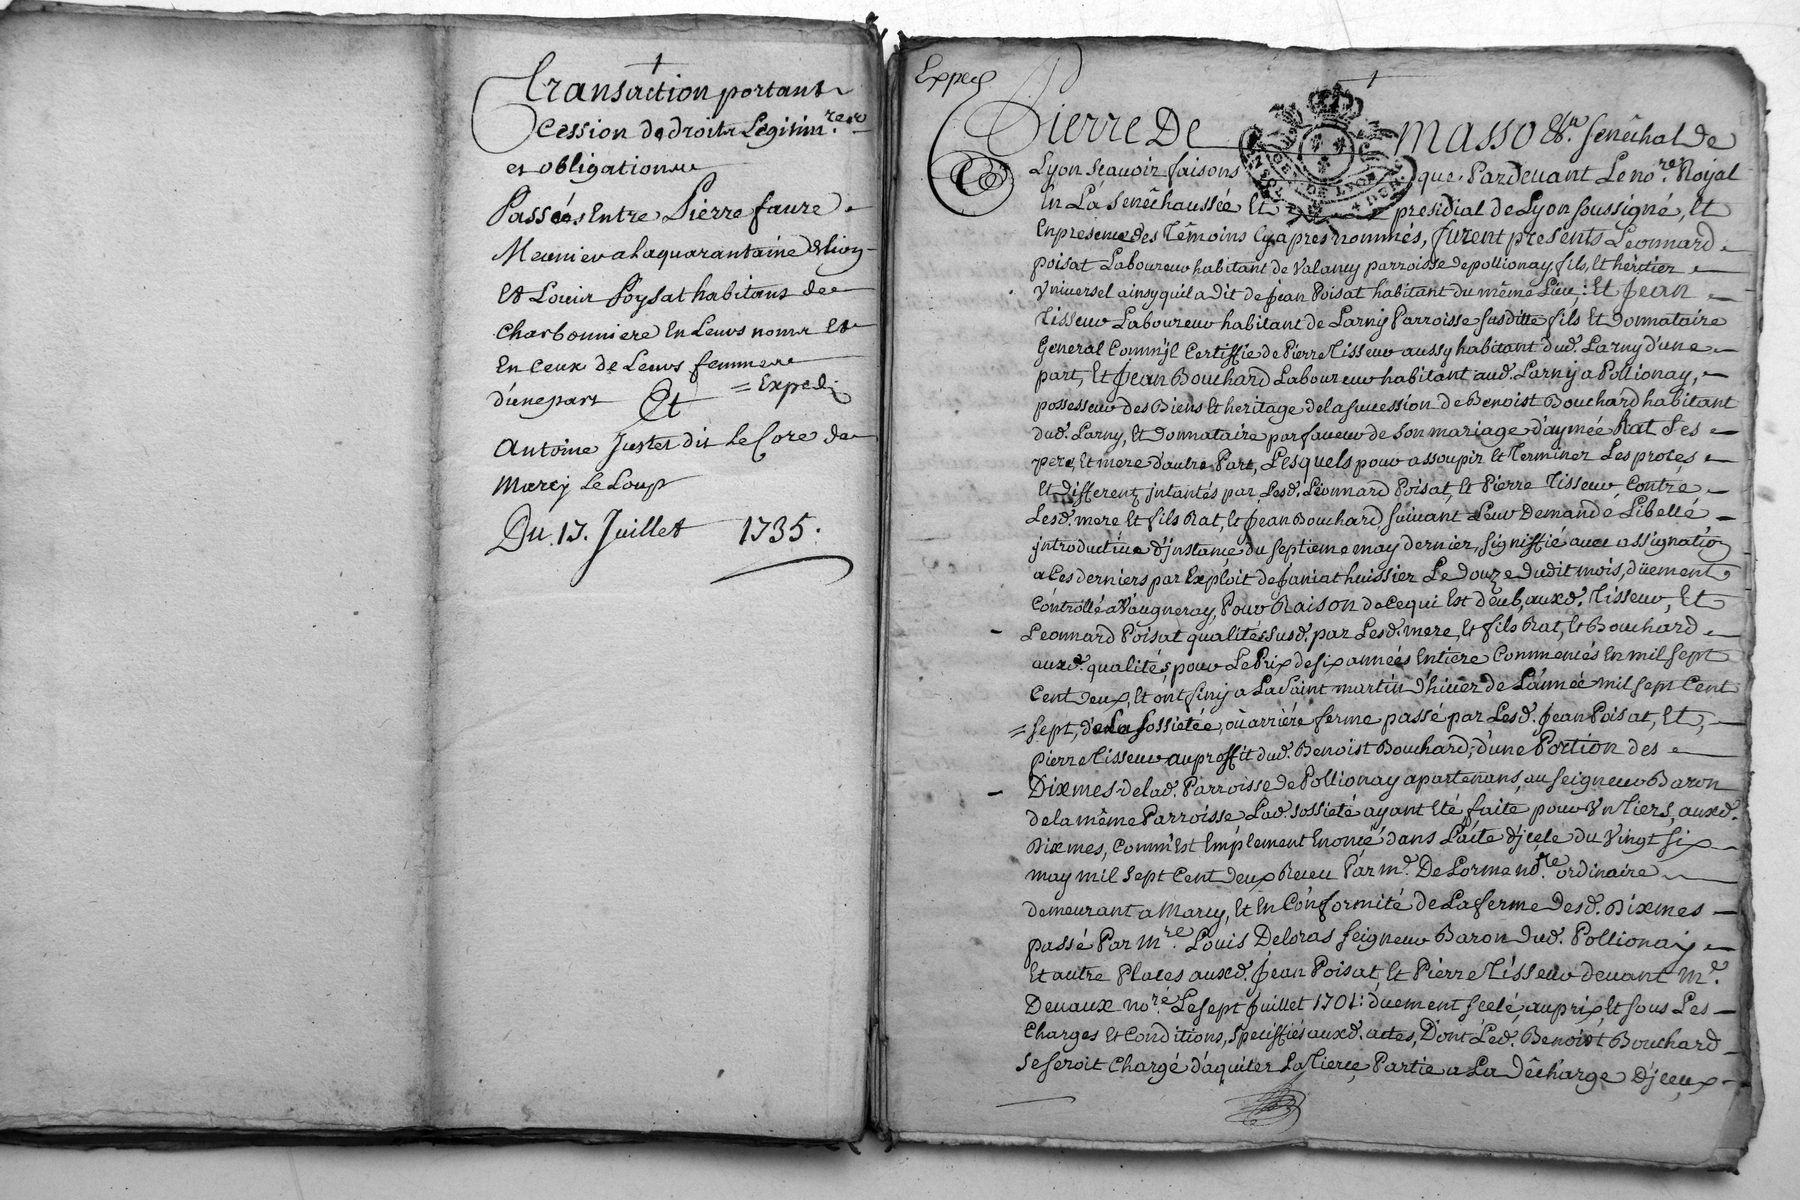 Transaction portant
Cession de droits Legitim.res
et obligations
Passées Entre Pierre faure
Meunier a la quarantaine de Lion
Et Louis Poysat habitans de
Charbonniere En Leurs noms Et
En Ceux de Leurs femmes
d'une part = Exped.
Et
Antoine Juste dit Le Core de
Marcy Le Loup
Du. 17. Juillet 1735.
Exped
Pierre De Masso Ch.er senêchal de
Lyon sçavoir faisons que Pardevant Le no.re Royal
En La senêchaussée Et presidial de Lyon soussigné, Et
En presence des Têmoins Cy apres nommés, furent presents Leonnard
poisat Laboureur habitant de Valancy parroisse de pollionay fils, Et hèritier
Vniversel ainsy qu'il a dit de Jean Poisat habitant du même Lieu; Et Jean
Tisseur Laboureur habitant de Larny Parroisse susditte fils Et Donnataire
General Comm'il Certiffie de Pierre Tisseur aussy habitant dud. Larny d'une
part, Et Jean Bouchard Laboureur habitant aud. Larny a Pollionay,
possesseur des Biens Et heritage de la succession de Benoist Bouchard habitant
dud. Larny, Et Donnataire par faveur de son mariage d'aymée Rat Ses
pere, Et mere d'autre Part, Lesquels pour assoupir Et Terminer Les procés
Et Differents jntantés par Lesd. Léonnard Poisat, Et Pierre Tisseur, Contre
Lesd. mere Et fils Rat, Et Jean Bouchard, suivant Leur Demande Libellé
jntroductive d'jnstance du septieme may dernier, signiffié avec assignation
a Ces derniers par Exploit de huissier Le Douze dudit mois, düement
Controllé a Vaugneray, Pour Raison de Ce qui Est deub, auxd. Tisseur, Et
Leonnard Poisat qualités susd. par Lesd. mere, Et fils Rat, Et Bouchard
auxd. qualités, pour Le Prix de six années Entiere Commencés En mil sept
Cent deux, Et ont finy a La Saint martin d'hiver de L'année mil sept Cent
= sept, de La sossietée, où arriére ferme passé par Lesd. Jean Poisat, Et,
Pierre Tisseur au proffit dud. Benoist Bouchard, d'une Portion des
Dixmes de lad. Parroisse de Pollionay apartenans, au seigneur Baron
de la même Parroisse Lad. sossieté ayant Eté faite pour Vn Tiers, auxd.
Dixmes, Comm'Est Emplement Enoncé dans L'acte d'jcele du Vingt six
may mil sept Cent deux Receu Par m.e De Lorme no.re ordinaire
demeurant a Marcy, Et En Conformité de La ferme Desd. Dixmes
passé Par M.re Louis Deloras seigneur Baron dud. Pollionay
Et autre Places auxd. Jean Poisat, Et Pierre Tisseur devant M.e
Devaux no.re Le sept Juillet 1701: duement scelé, au prix, Et sous Les
Charges Et Conditions, speciffiés auxd. actes, Dont Led. Benoist Bouchard
se seroit Chargé d'aquiter La Tierce, Partie a La Dêcharge d'jceux